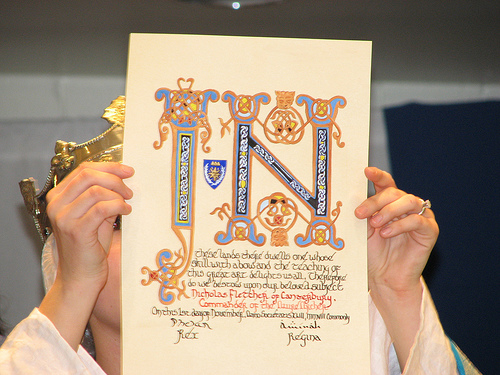 IN
these lands there dwells one whose
skill with a bow and the teaching of
this great art delights us all. Therefore
do we bestow upon our beloved subject
Nicholas Fletcher of Canterbury.
Commander of the
On this 1st day of November, Anno Societatis XLII,
Rex Regina